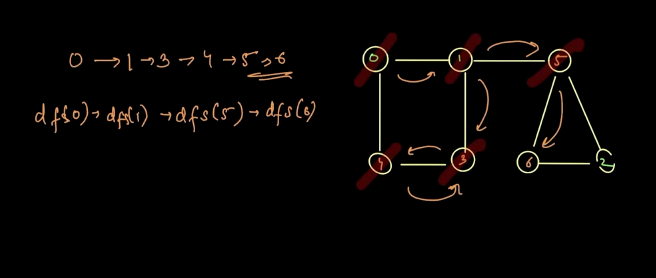 0 → 1 → 3 → 4 → 5 → 6
dfs(0) → dfs(1) → dfs(5) → dfs(6)
0 1 5
4 3 6 2